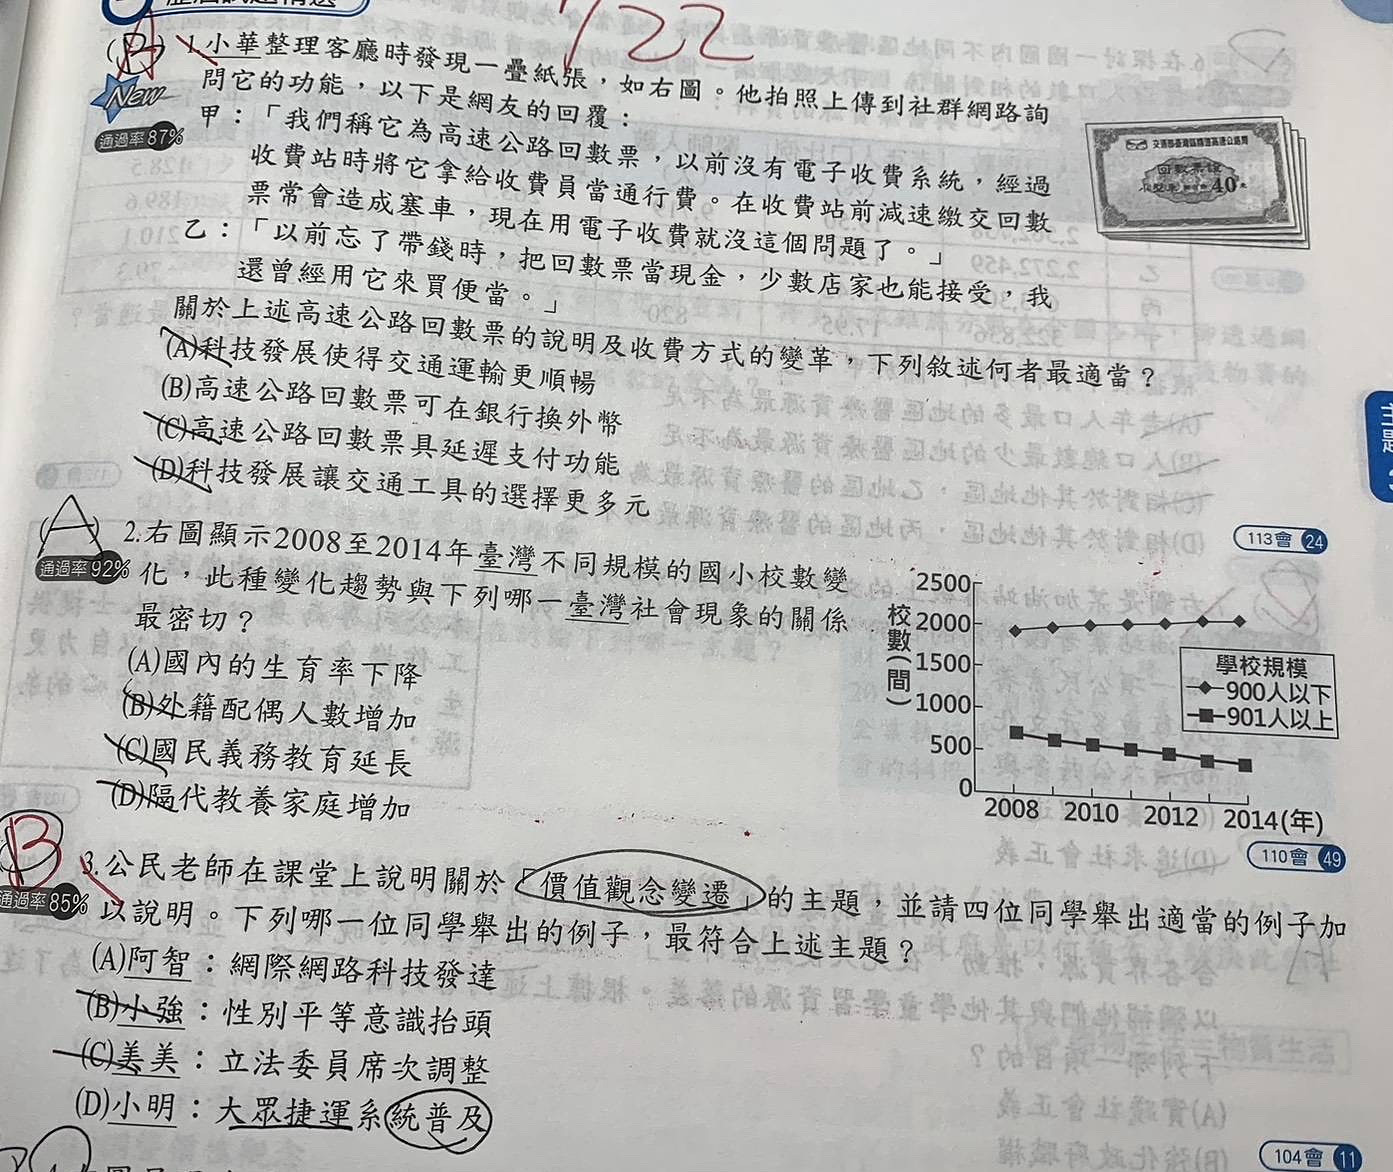 722
(B) A 1.小華整理客廳時發現一疊紙張，如右圖。他拍照上傳到社群網路詢
New 問它的功能，以下是網友的回覆：
通過率87% 甲：「我們稱它為高速公路回數票，以前沒有電子收費系統，經過
收費站時將它拿給收費員當通行費。在收費站前減速繳交回數
票常會造成塞車，現在用電子收費就沒這個問題了。」
乙：「以前忘了帶錢時，把回數票當現金，少數店家也能接受，我
還曾經用它來買便當。」
回數票
40
關於上述高速公路回數票的說明及收費方式的變革，下列敘述何者最適當？
(A)科技發展使得交通運輸更順暢
(B)高速公路回數票可在銀行換外幣
(C)高速公路回數票具延遲支付功能
(D)科技發展讓交通工具的選擇更多元
113會 24
主題
(A) 2.右圖顯示2008至2014年臺灣不同規模的國小校數變
通過率92% 化，此種變化趨勢與下列哪一臺灣社會現象的關係
最密切？
(A)國內的生育率下降
(B)外籍配偶人數增加
(C)國民義務教育延長
(D)隔代教養家庭增加
校數(間)
2500
2000
1500
1000
500
0
2008 2010 2012 2014(年)
學校規模
900人以下
901人以上
110會 49
B 3.公民老師在課堂上說明關於「價值觀念變遷」的主題，並請四位同學舉出適當的例子加
通過率85% 以說明。下列哪一位同學舉出的例子，最符合上述主題？
(A)阿智：網際網路科技發達
(B)小強：性別平等意識抬頭
(C)美美：立法委員席次調整
(D)小明：大眾捷運系統普及
104會 11